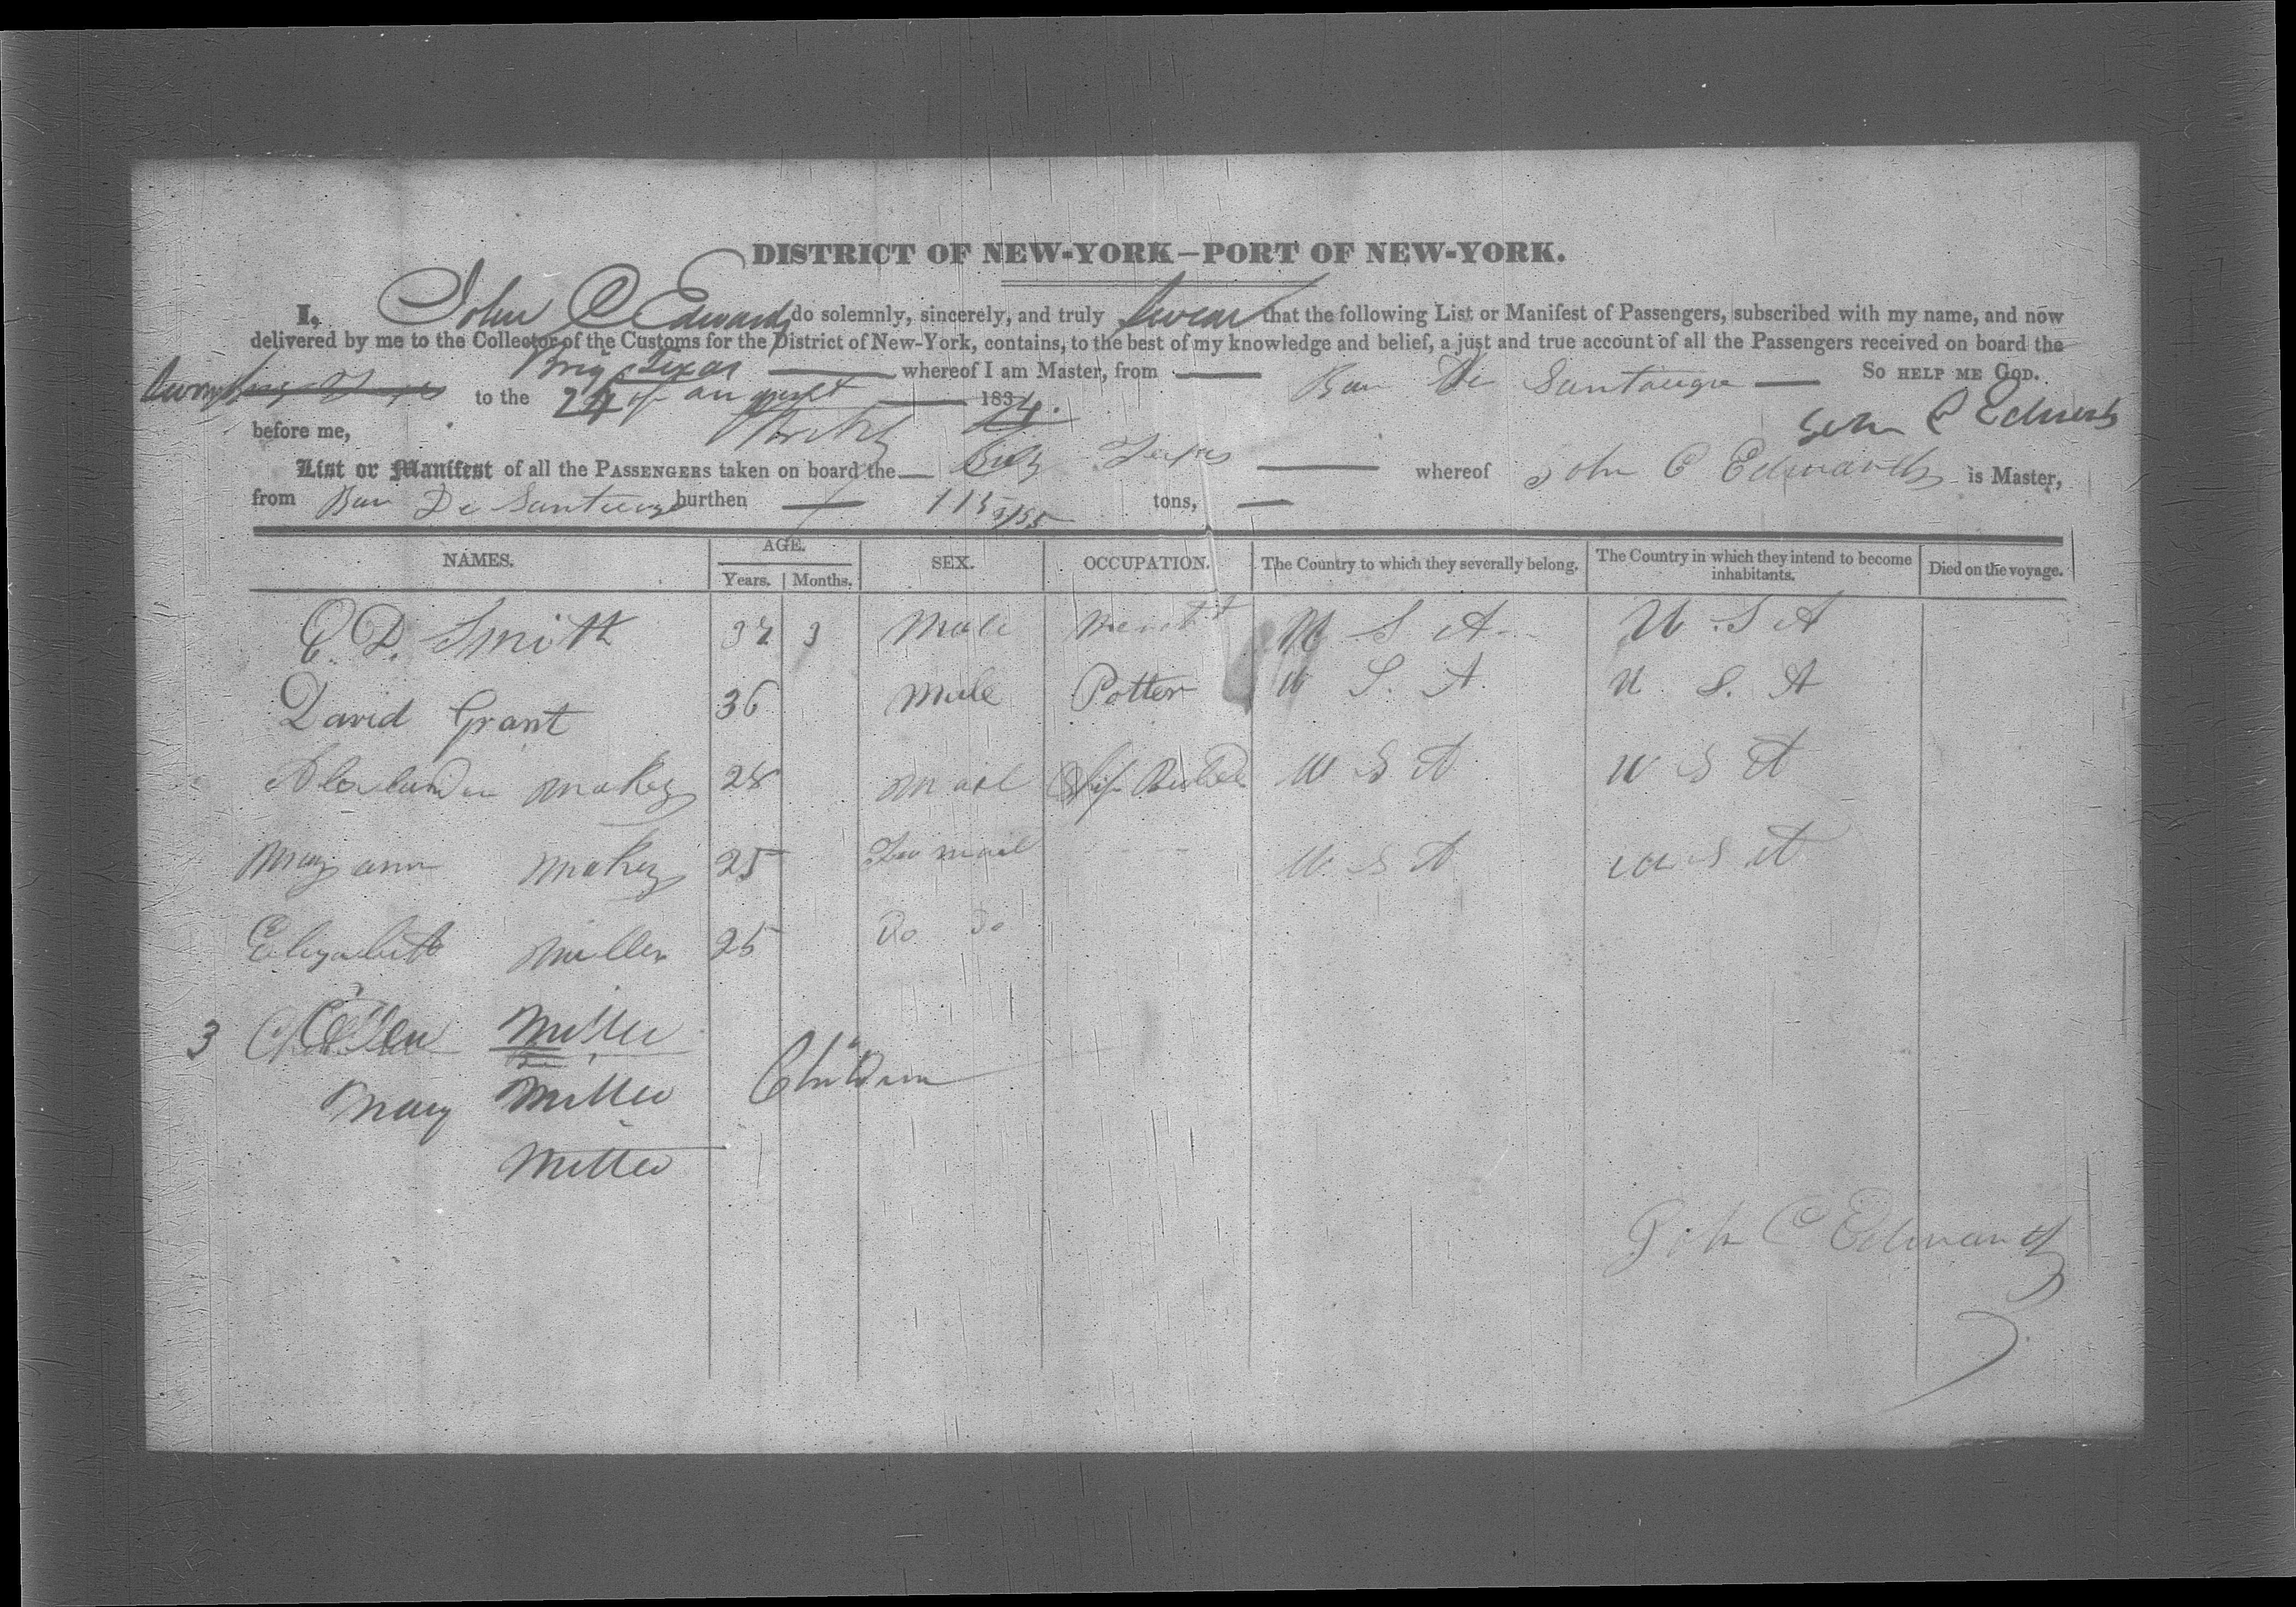 DISTRICT OF NEW-YORK—PORT OF NEW-YORK.
I, John C Edwards do solemnly, sincerely, and truly swear that the following List or Manifest of Passengers, subscribed with my name, and now
delivered by me to the Collector of the Customs for the District of New-York, contains, to the best of my knowledge and belief, a just and true account of all the Passengers received on board the
Brig Texas whereof I am Master, from Bun De Santiago So HELP ME GOD.
to the 24 of august 1834.
before me, John C Edwards
List or Manifest of all the PASSENGERS taken on board the Brig Texas whereof John C Edwards is Master,
from Bun De Santiago burthen 115 tons,
NAMES. AGE. SEX. OCCUPATION. The Country to which they severally belong. The Country in which they intend to become inhabitants. Died on the voyage.
Years. Months.
E. D. Smith 37 3 Male U S A U S A
David Grant 36 Male Potter U S. A. U. S. A
makey 28 mail U S A U S A
Mary ann makey 25 Fe mail U S A U S A
Elizabeth Miller 25 Do Do
3 Ellen Miller
Mary Miller Children
Miller
John C Edwards